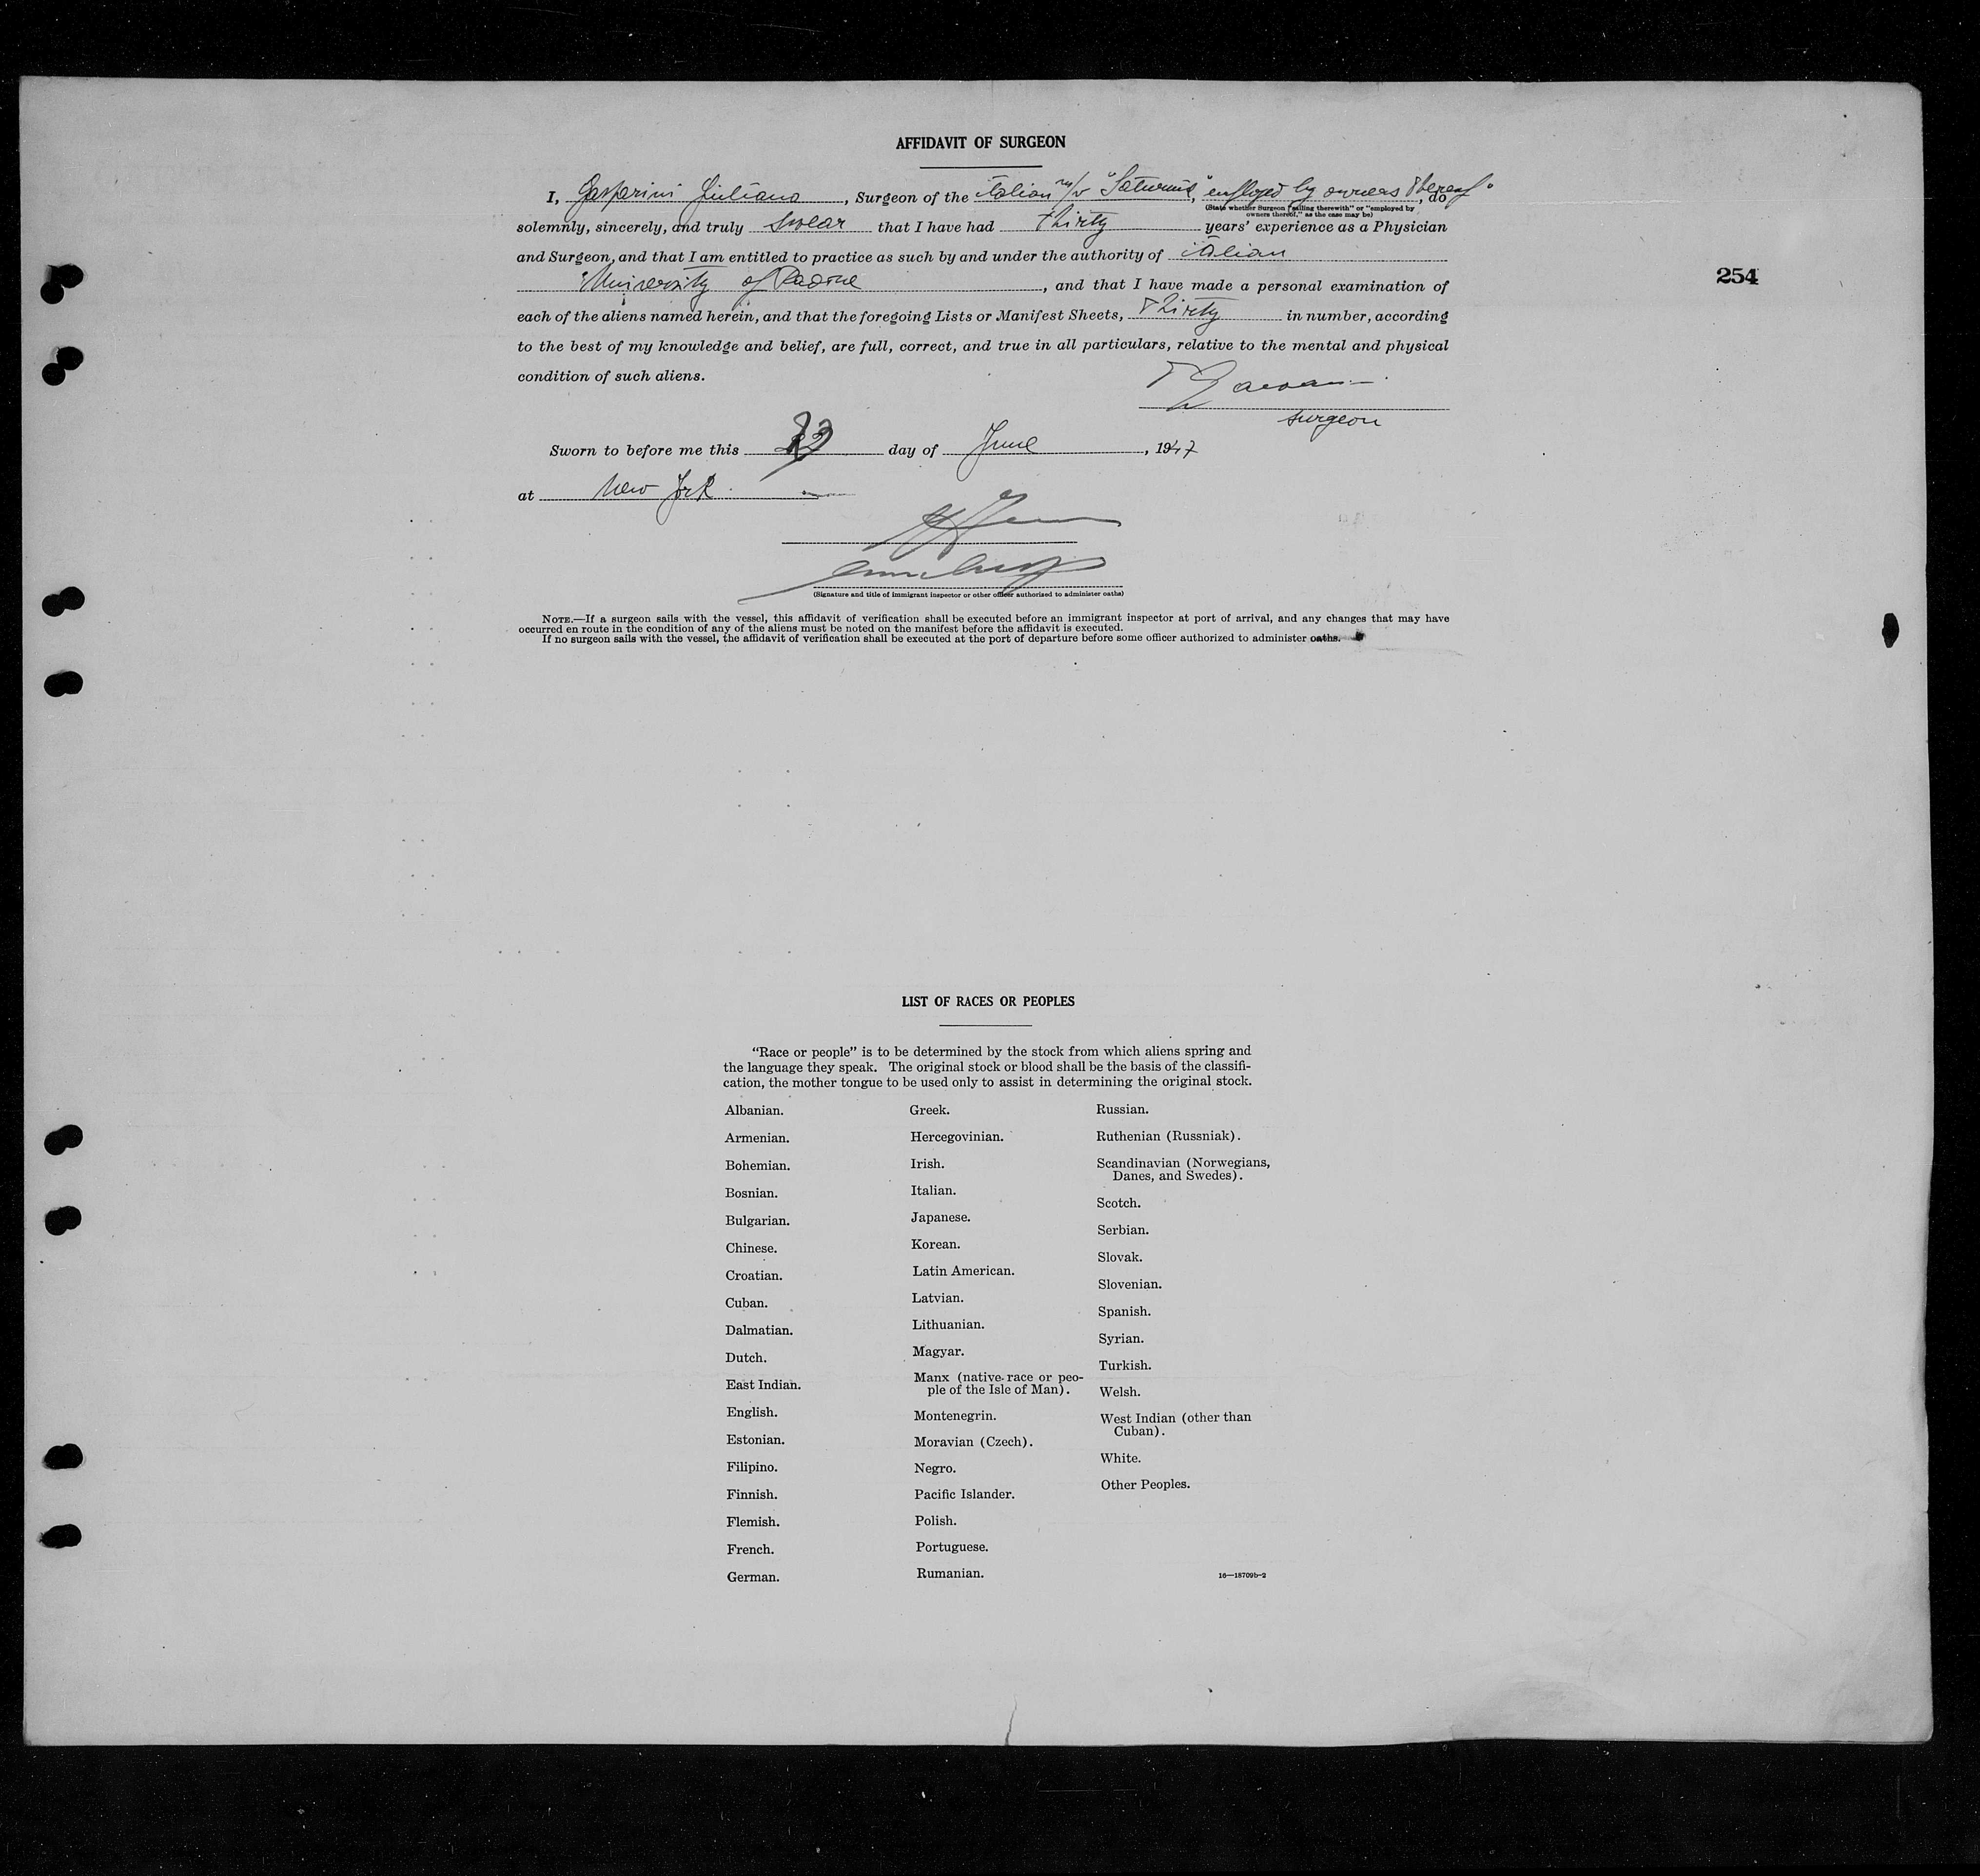 AFFIDAVIT OF SURGEON
I, Gasparini Giuliano, Surgeon of the italian m/v "Saturnia", "employed by owners thereof", do
(State whether Surgeon "sailing therewith" or "employed by
owners thereof," as the case may be)
solemnly, sincerely, and truly swear that I have had thirty years' experience as a Physician
and Surgeon, and that I am entitled to practice as such by and under the authority of italian
254
University of , and that I have made a personal examination of
each of the aliens named herein, and that the foregoing Lists or Manifest Sheets, Thirty in number, according
to the best of my knowledge and belief, are full, correct, and true in all particulars, relative to the mental and physical
condition of such aliens.
surgeon
Sworn to before me this day of June, 1947
at New York
(Signature and title of immigrant inspector or other officer authorized to administer oaths)
NOTE.—If a surgeon sails with the vessel, this affidavit of verification shall be executed before an immigrant inspector at port of arrival, and any changes that may have
occurred en route in the condition of any of the aliens must be noted on the manifest before the affidavit is executed.
If no surgeon sails with the vessel, the affidavit of verification shall be executed at the port of departure before some officer authorized to administer oaths.
LIST OF RACES OR PEOPLES
"Race or people" is to be determined by the stock from which aliens spring and
the language they speak. The original stock or blood shall be the basis of the classifi-
cation, the mother tongue to be used only to assist in determining the original stock.
Albanian.
Armenian.
Bohemian.
Bosnian.
Bulgarian.
Chinese.
Croatian.
Cuban.
Dalmatian.
Dutch.
East Indian.
English.
Estonian.
Filipino.
Finnish.
Flemish.
French.
German.
Greek.
Hercegovinian.
Irish.
Italian.
Japanese.
Korean.
Latin American.
Latvian.
Lithuanian.
Magyar.
Manx (native race or peo-
ple of the Isle of Man).
Montenegrin.
Moravian (Czech).
Negro.
Pacific Islander.
Polish.
Portuguese.
Rumanian.
Russian.
Ruthenian (Russniak).
Scandinavian (Norwegians,
Danes, and Swedes).
Scotch.
Serbian.
Slovak.
Slovenian.
Spanish.
Syrian.
Turkish.
Welsh.
West Indian (other than
Cuban).
White.
Other Peoples.
16—18709b-2